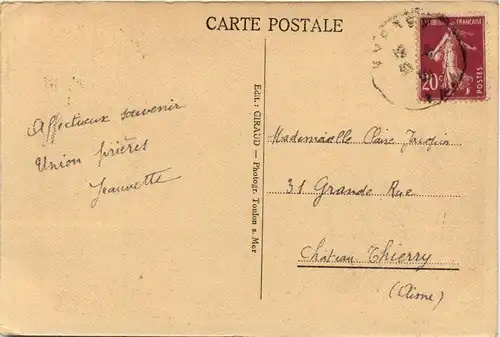 CARTE POSTALE
RÉPUBLIQUE FRANÇAISE
20c
POSTES
Affectueux souvenir
Union prières
Jeannette
Edit.: GIRAUD — Photogr. Toulon s. Mer
Mademoiselle Claire Jacquin
31 Grande Rue
Château Thierry
(Aisne)